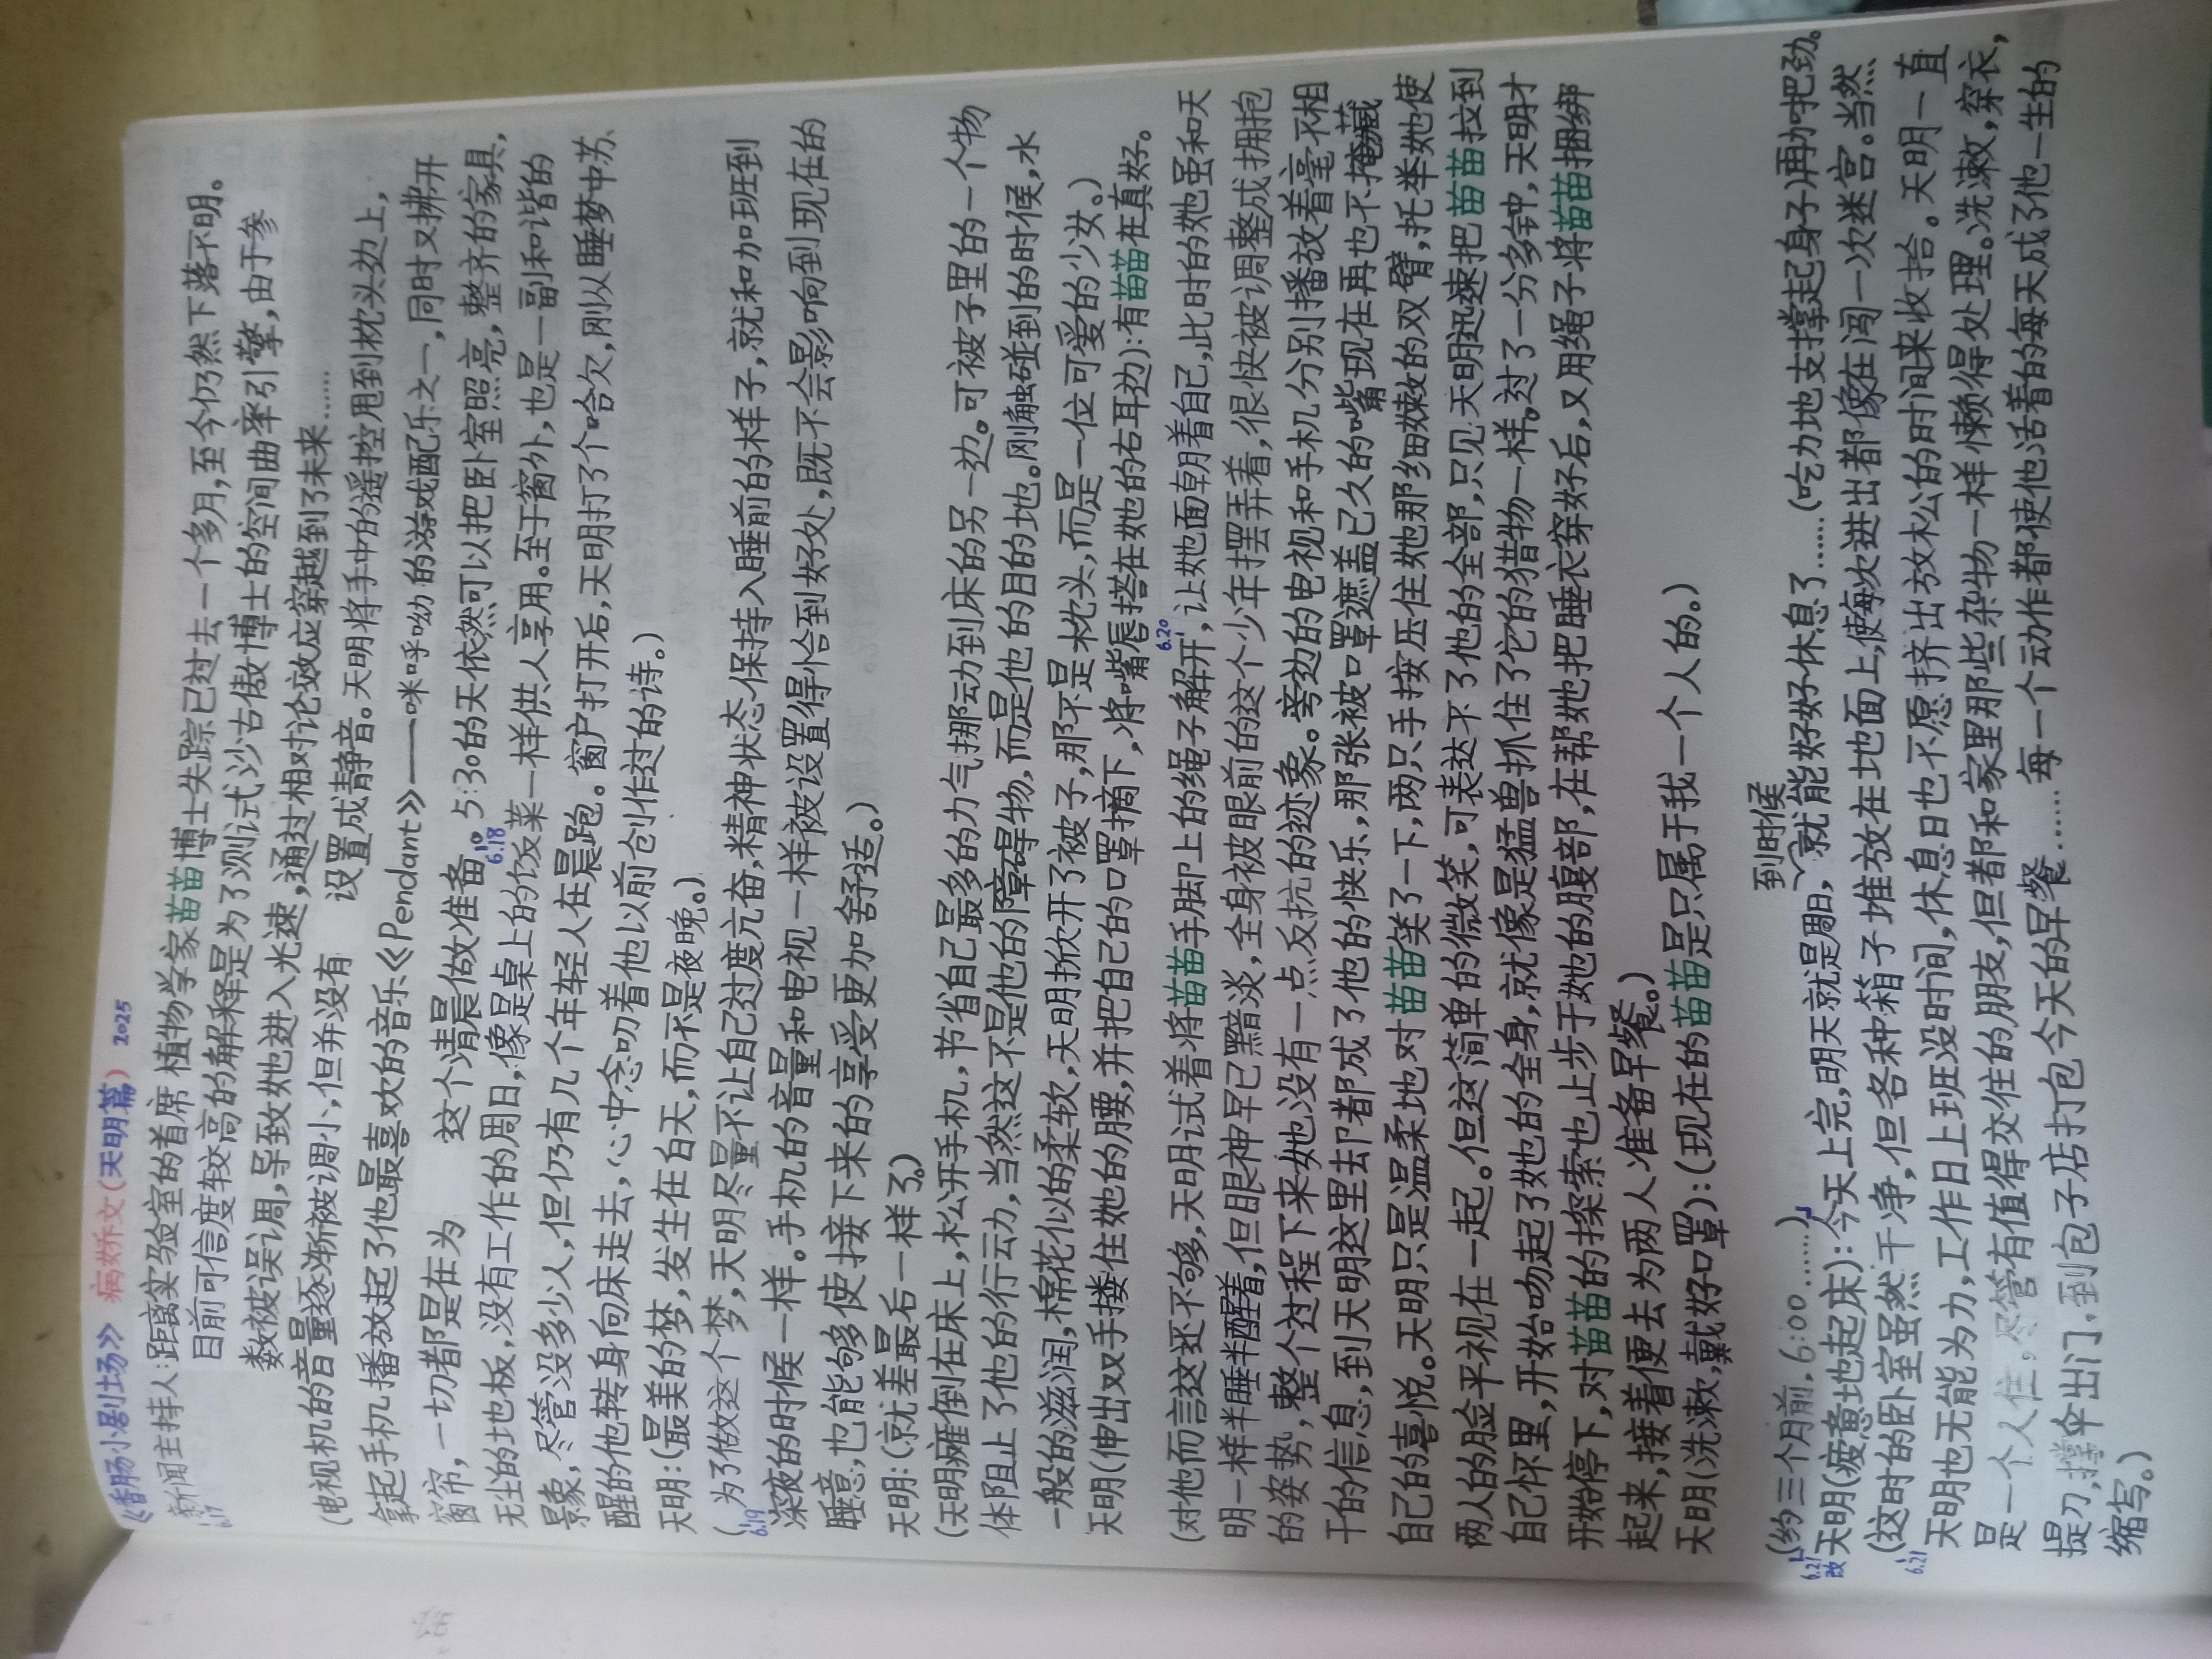 《香肠小剧场》 病娇文(天明篇) 2025
新闻主持人:距离实验室的首席植物学家苗苗博士失踪已过去一个多月,至今仍然下落不明。
6.17
目前可信度较高的解释是为了测试沙古傲博士的空间曲率引擎,由于参
数被误调,导致她进入光速,通过相对论效应穿越到了未来……
(电视机的音量逐渐被调小,但并没有 设置成静音。天明将手中的遥控甩到枕头边上,
拿起手机,播放起了他最喜欢的音乐《Pendant》——咪呼呦的游戏配乐之一,同时又拂开
窗帘,一切都是在为 这个清晨做准备。5:30的天依然可以把卧室照亮,整齐的家具,
6.18
无尘的地板,没有工作的周日,像是桌上的饭菜一样供人享用。至于窗外,也是一副和谐的
景象,尽管没多少人,但仍有几个年轻人在晨跑。窗户打开后,天明打了个哈欠,刚从睡梦中苏
醒的他转身向床走去,心中念叨着他以前创作过的诗。)
天明:(最美的梦,发生在白天,而不是夜晚。)
(为了做这个梦,天明尽量不让自己过度亢奋,精神状态保持入睡前的样子,就和加班到
6.19
深夜的时候一样。手机的音量和电视一样被设置得恰到好处,既不会影响到现在的
睡意,也能够使接下来的享受更加舒适。)
天明:(就差最后一样了。)
(天明瘫倒在床上,松开手机,节省自己最多的力气挪动到床的另一边。可被子里的一个物
体阻止了他的行动,当然这不是他的障碍物,而是他的目的地。刚触碰到的时候,水
一般的滋润,棉花似的柔软,天明掀开了被子,那不是枕头,而是一位可爱的少女。)
天明(伸出双手搂住她的腰,并把自己的口罩摘下,将嘴唇搭在她的右耳边):有苗苗在真好。
6.20
(对他而言这还不够,天明试着将苗苗手脚上的绳子解开,让她面朝着自己,此时的她虽和天
明一样半睡半醒着,但眼神早已黯淡,全身被眼前的这个少年摆弄着,很快被调整成拥抱
的姿势,整个过程下来她没有一点反抗的迹象。旁边的电视和手机分别播放着毫不相
干的信息,到天明这里却都成了他的快乐,那张被口罩遮盖已久的嘴现在再也不掩藏
自己的喜悦。天明只是温柔地对苗苗笑了一下,两只手按压住她那细嫩的双臂,托举她使
两人的脸平视在一起。但这简单的微笑,可表达不了他的全部,只见天明迅速把苗苗拉到
自己怀里,开始吻起了她的全身,就像是猛兽抓住了它的猎物一样。过了一分多钟,天明才
开始停下,对苗苗的探索也止步于她的腹部,在帮她把睡衣穿好后,又用绳子将苗苗捆绑
起来,接着便去为两人准备早餐。)
天明(洗漱,戴好口罩):(现在的苗苗是只属于我一个人的。)
(约三个月前,6:00……)
到时候
天明(疲惫地起床):今天上完,明天就是周日,就能好好休息了……(吃力地支撑起身子)再加把劲。
6.21改
(这时的卧室虽然干净,但各种箱子堆放在地面上,使每次进出都像在闯一次迷宫。当然
6.21
天明也无能为力,工作日上班没时间,休息日也不愿挤出放松的时间来收拾。天明一直
是一个人住,尽管有值得交往的朋友,但都和家里那些杂物一样懒得处理。洗漱,穿衣,
提刀,撑伞出门,到包子店打包今天的早餐……每一个动作都使他活着的每天成了他一生的
缩写。)